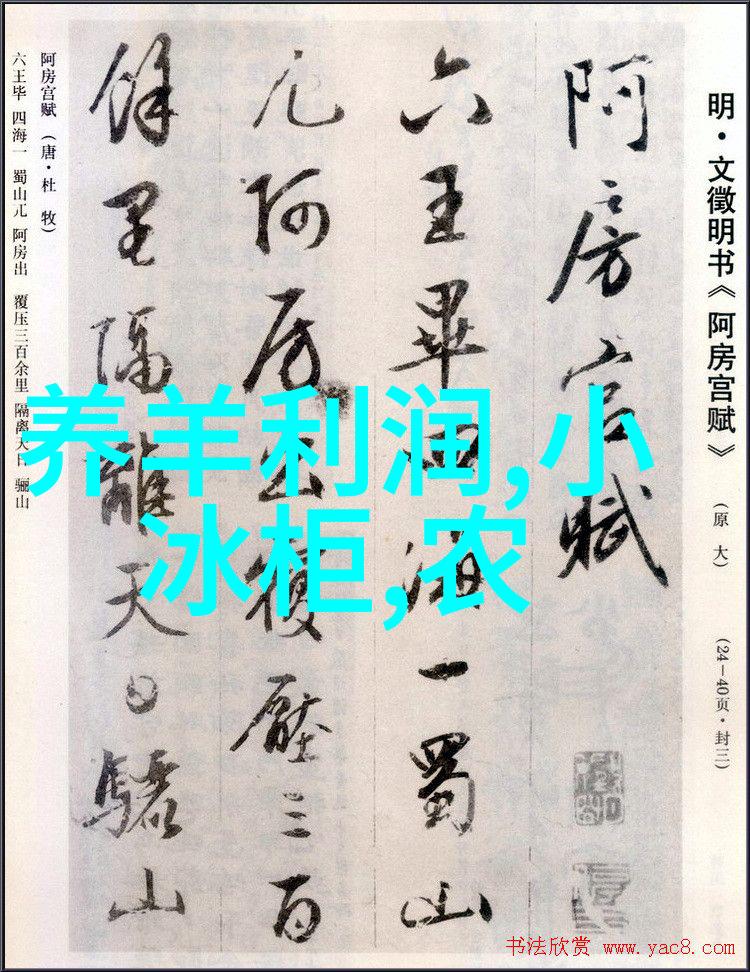 明·文徵明书《阿房宫赋》 (原大) (24—40页·封三)
阿房宫赋
六王畢四海一蜀山
兀阿房出覆壓三百
餘里隔離天日驪山
阿房宫赋(唐·杜 牧)
六王毕 四海一 蜀山兀 阿房出 覆压三百余里 隔离天日 骊山
养羊利润,小
冰柜,农
书法欣赏 www.yac8.com